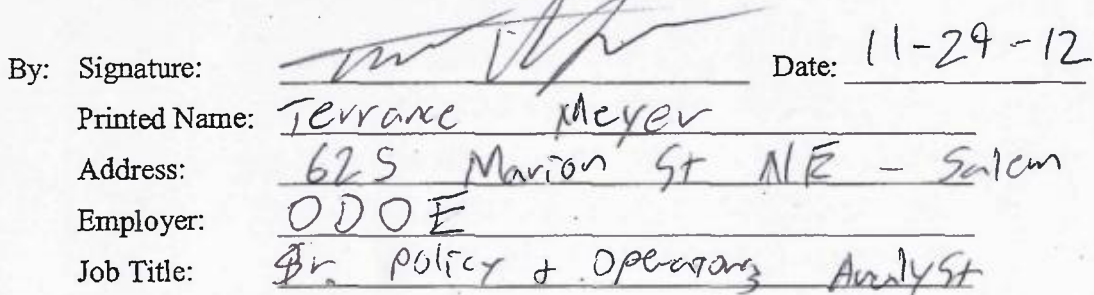 By: Signature: Date: 11-29-12
Printed Name: Terrance Meyer
Address: 625 Marion St NE - Salem
Employer: ODOE
Job Title: Sr. Policy & Operations Analyst